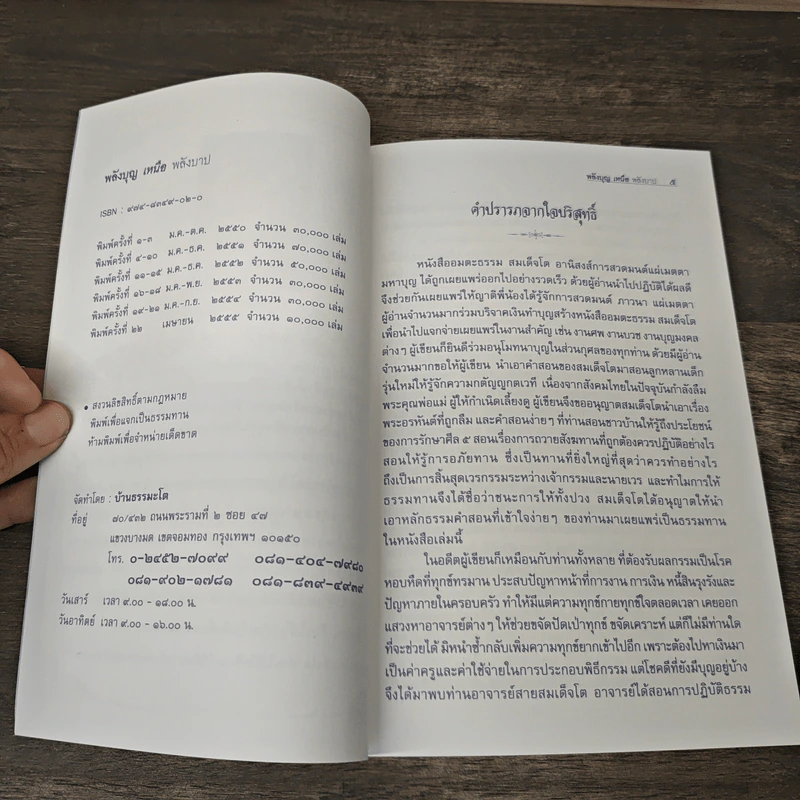 พลังบุญ เหนือ พลังบาป
ISBN : ๙๗๔-๘๓๔๙-๐๒-๐
พิมพ์ครั้งที่ ๑-๓ ม.ค.-ต.ค. ๒๕๕๐ จำนวน ๓๐,๐๐๐ เล่ม
พิมพ์ครั้งที่ ๔-๑๐ ม.ค.-ธ.ค. ๒๕๕๑ จำนวน ๗๐,๐๐๐ เล่ม
พิมพ์ครั้งที่ ๑๑-๑๕ ม.ค.-ธ.ค. ๒๕๕๒ จำนวน ๕๐,๐๐๐ เล่ม
พิมพ์ครั้งที่ ๑๖-๑๘ ม.ค.-พ.ย. ๒๕๕๓ จำนวน ๓๐,๐๐๐ เล่ม
พิมพ์ครั้งที่ ๑๙-๒๑ ม.ค.-ก.ย. ๒๕๕๔ จำนวน ๓๐,๐๐๐ เล่ม
พิมพ์ครั้งที่ ๒๒ เมษายน ๒๕๕๕ จำนวน ๑๐,๐๐๐ เล่ม
• สงวนลิขสิทธิ์ตามกฎหมาย
พิมพ์เพื่อแจกเป็นธรรมทาน
ห้ามพิมพ์เพื่อจำหน่ายเด็ดขาด
จัดทำโดย : บ้านธรรมะโต
ที่อยู่ ๗๐/๔๓๒ ถนนพระรามที่ ๒ ซอย ๔๗
แขวงบางมด เขตจอมทอง กรุงเทพฯ ๑๐๑๕๐
โทร. ๐-๒๔๕๒-๗๐๙๙ ๐๘๑-๔๐๔-๗๙๘๐
๐๘๑-๙๐๒-๑๗๘๑ ๐๘๑-๘๓๙-๔๙๓๙
วันเสาร์ เวลา ๙.๐๐ - ๑๘.๐๐ น.
วันอาทิตย์ เวลา ๙.๐๐ - ๑๖.๐๐ น.
พลังบุญ เหนือ พลังบาป ๕
คำปรารภจากใจบริสุทธิ์
หนังสืออมตะธรรม สมเด็จโต อานิสงส์การสวดมนต์แผ่เมตตา
มหาบุญ ได้ถูกเผยแพร่ออกไปอย่างรวดเร็ว ด้วยผู้อ่านนำไปปฏิบัติได้ผลดี
จึงช่วยกันเผยแพร่ให้ญาติพี่น้องได้รู้จักการสวดมนต์ ภาวนา แผ่เมตตา
ผู้อ่านจำนวนมากร่วมบริจาคเงินทำบุญสร้างหนังสืออมตะธรรม สมเด็จโต
เพื่อนำไปแจกจ่ายเผยแพร่ในงานสำคัญ เช่น งานศพ งานบวช งานบุญมงคล
ต่างๆ ผู้เขียนก็ยินดีร่วมอนุโมทนาบุญในส่วนกุศลของทุกท่าน ด้วยมีผู้อ่าน
จำนวนมากขอให้ผู้เขียน นำเอาคำสอนของสมเด็จโตมาสอนลูกหลานเด็ก
รุ่นใหม่ให้รู้จักความกตัญญูกตเวที เนื่องจากสังคมไทยในปัจจุบันกำลังลืม
พระคุณพ่อแม่ ผู้ให้กำเนิดเลี้ยงดู ผู้เขียนจึงขออนุญาตสมเด็จโตนำเอาเรื่อง
พระอรหันต์ที่ถูกลืม และคำสอนง่ายๆ ที่ท่านสอนชาวบ้านให้รู้ถึงประโยชน์
ของการรักษาศีล ๕ สอนเรื่องการถวายสังฆทานที่ถูกต้องควรปฏิบัติอย่างไร
สอนให้รู้การอภัยทาน ซึ่งเป็นทานที่ยิ่งใหญ่ที่สุดว่าควรทำอย่างไร
ถึงเป็นการสิ้นสุดเวรกรรมระหว่างเจ้ากรรมและนายเวร และทำไมการให้
ธรรมทานจึงได้ชื่อว่าชนะการให้ทั้งปวง สมเด็จโตได้อนุญาตให้นำ
เอาหลักธรรมคำสอนที่เข้าใจง่ายๆ ของท่านมาเผยแพร่เป็นธรรมทาน
ในหนังสือเล่มนี้
ในอดีตผู้เขียนก็เหมือนกับท่านทั้งหลาย ที่ต้องรับผลกรรมเป็นโรค
หอบหืดที่ทุกข์ทรมาน ประสบปัญหาหน้าที่การงาน การเงิน หนี้สินรุงรังและ
ปัญหาภายในครอบครัว ทำให้มีแต่ความทุกข์กายทุกข์ใจตลอดเวลา เคยออก
แสวงหาอาจารย์ต่างๆ ให้ช่วยขจัดปัดเป่าทุกข์ ขจัดเคราะห์ แต่ก็ไม่มีท่านใด
ที่จะช่วยได้ มิหนำซ้ำกลับเพิ่มความทุกข์ยากเข้าไปอีก เพราะต้องไปหาเงินมา
เป็นค่าครูและค่าใช้จ่ายในการประกอบพิธีกรรม แต่โชคดีที่ยังมีบุญอยู่บ้าง
จึงได้มาพบท่านอาจารย์สายสมเด็จโต อาจารย์ได้สอนการปฏิบัติธรรม